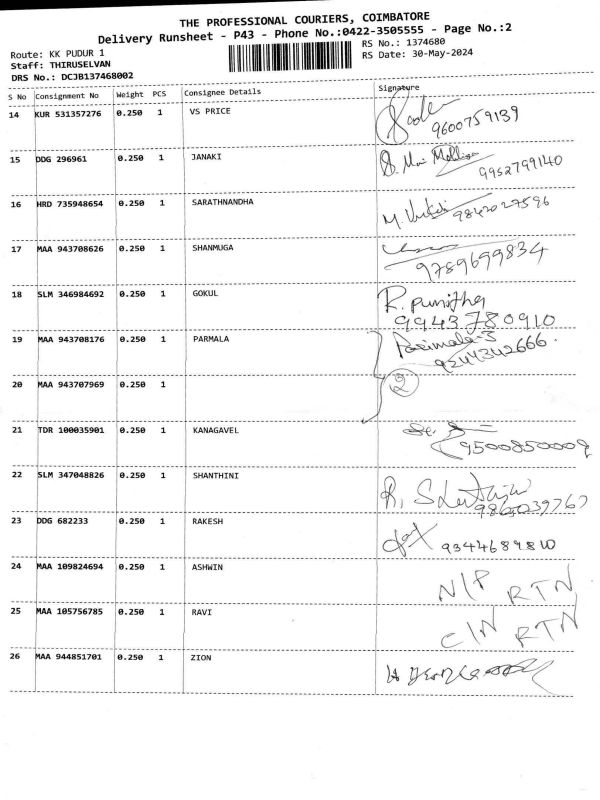 THE PROFESSIONAL COURIERS, COIMBATORE
Delivery Runsheet - P43 - Phone No.:0422-3505555 - Page No.:2
Route: KK PUDUR 1
RS No.: 1374680
Staff: THIRUSELVAN
RS Date: 30-May-2024
DRS No.: DCJB137468002
S No Consignment No Weight PCS Consignee Details Signature
14 KUR 531357276 0.250 1 VS PRICE
9600759139
15 DDG 296961 0.250 1 JANAKI
9952799140
16 HRD 735948654 0.250 1 SARATHNANDHA
9842027596
17 MAA 943708626 0.250 1 SHANMUGA
9789699834
18 SLM 346984692 0.250 1 GOKUL R. Punitha
9943780910
19 MAA 943708176 0.250 1 PARMALA Parimala-S
9244342666.
20 MAA 943707969 0.250 1 2
21 TDR 100035901 0.250 1 KANAGAVEL
9500850009
22 SLM 347048826 0.250 1 SHANTHINI
9865039767
23 DDG 682233 0.250 1 RAKESH 9344689810
24 MAA 109824694 0.250 1 ASHWIN N/P RTN
25 MAA 105756785 0.250 1 RAVI C/N RTN
26 MAA 944851701 0.250 1 ZION